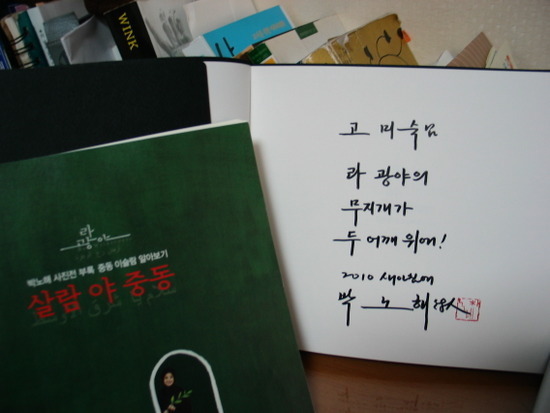 WINK
라
광야
박노해 사진전 부록 중동 이슬람 알아보기
살람 야 중동
고 미숙님
라 광야의
무지개가
두 어깨 위에!
2010 새아침에
박 노 해